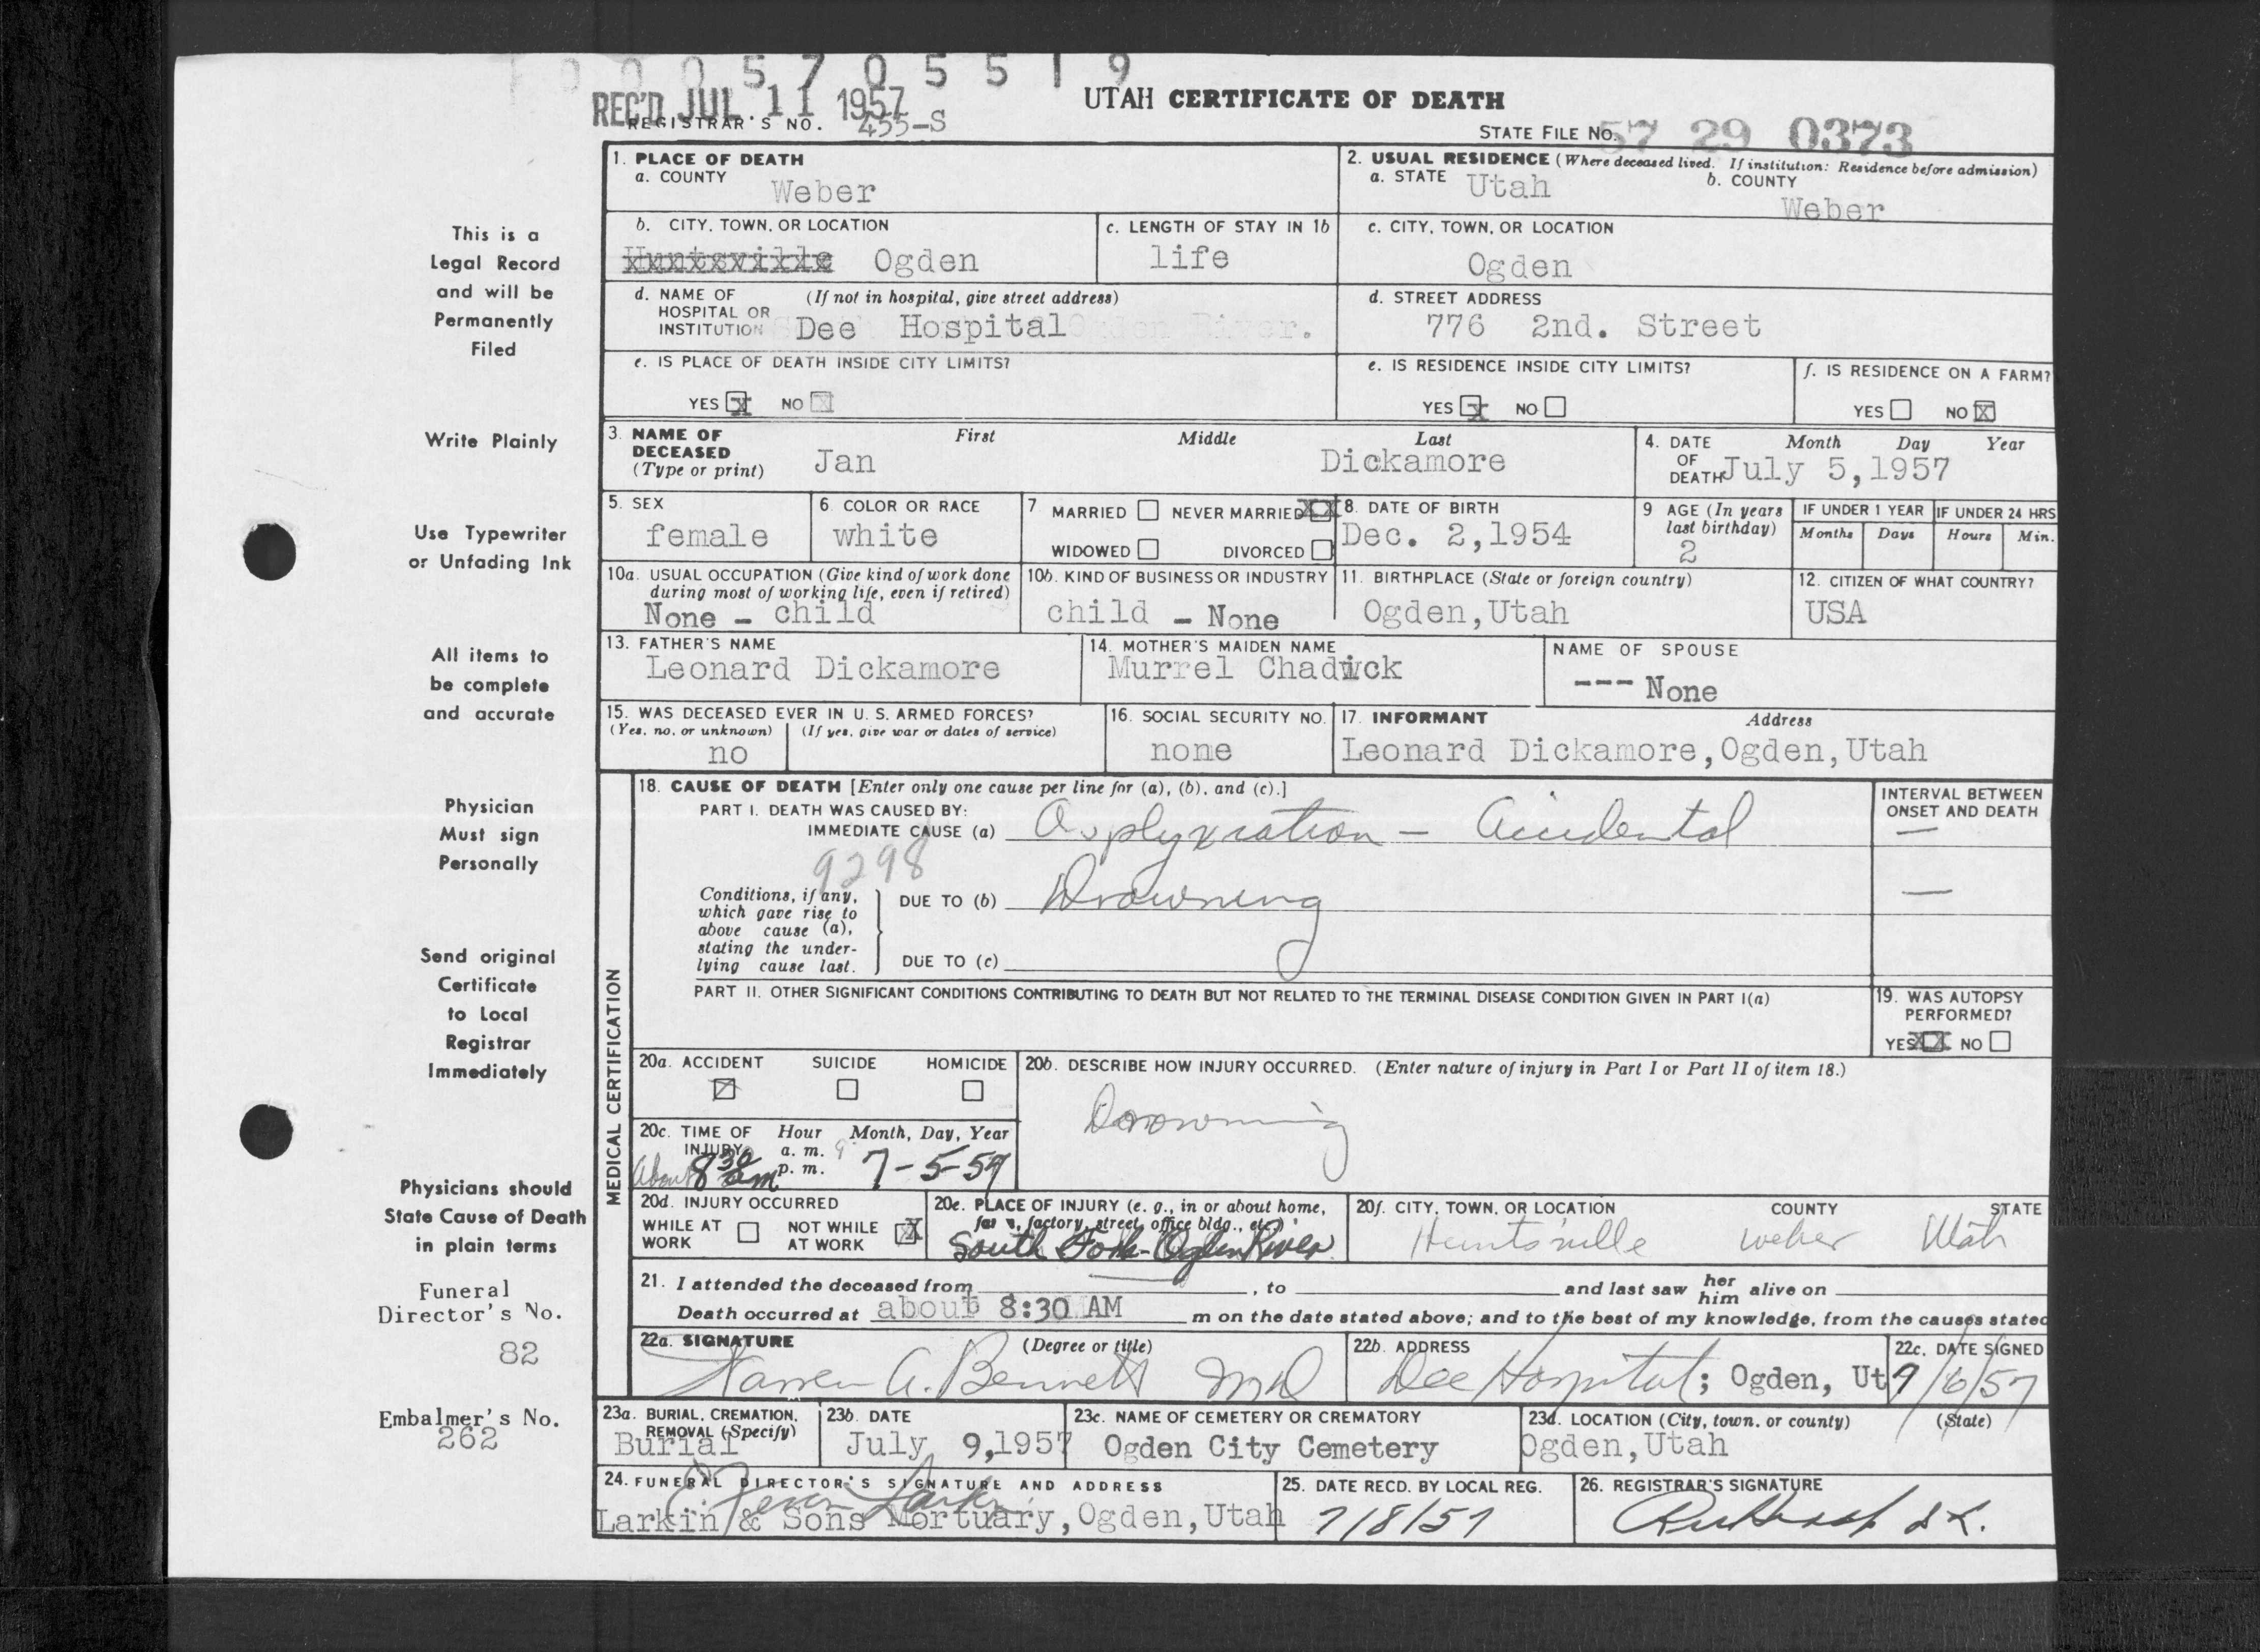 0 0 0 5 7 0 5 5 1 9
REC'D JUL 11 1957
UTAH CERTIFICATE OF DEATH
REGISTRAR'S NO. 455-S
STATE FILE NO. 57 29 0373
1. PLACE OF DEATH
a. COUNTY
Weber
2. USUAL RESIDENCE (Where deceased lived. If institution: Residence before admission)
a. STATE Utah b. COUNTY
Weber
b. CITY, TOWN, OR LOCATION
Huntsville Ogden
c. LENGTH OF STAY IN 1b
life
c. CITY, TOWN, OR LOCATION
Ogden
d. NAME OF (If not in hospital, give street address)
HOSPITAL OR
INSTITUTION Dee Hospital Ogden River.
d. STREET ADDRESS
776 2nd. Street
e. IS PLACE OF DEATH INSIDE CITY LIMITS?
YES X NO X
e. IS RESIDENCE INSIDE CITY LIMITS?
YES X NO
f. IS RESIDENCE ON A FARM?
YES NO X
3. NAME OF DECEASED (Type or print)
First Middle Last
Jan Dickamore
4. DATE OF DEATH Month Day Year
July 5,1957
5. SEX
female
6. COLOR OR RACE
white
7. MARRIED NEVER MARRIED XX
WIDOWED DIVORCED
8. DATE OF BIRTH
Dec. 2,1954
9. AGE (In years last birthday)
2
IF UNDER 1 YEAR IF UNDER 24 HRS
Months Days Hours Min.
10a. USUAL OCCUPATION (Give kind of work done
during most of working life, even if retired)
None - child
10b. KIND OF BUSINESS OR INDUSTRY
child - None
11. BIRTHPLACE (State or foreign country)
Ogden,Utah
12. CITIZEN OF WHAT COUNTRY?
USA
13. FATHER'S NAME
Leonard Dickamore
14. MOTHER'S MAIDEN NAME
Murrel Chadwick
NAME OF SPOUSE
--- None
15. WAS DECEASED EVER IN U. S. ARMED FORCES?
(Yes, no, or unknown) (If yes, give war or dates of service)
no
16. SOCIAL SECURITY NO.
none
17. INFORMANT Address
Leonard Dickamore,Ogden,Utah
MEDICAL CERTIFICATION
18. CAUSE OF DEATH [Enter only one cause per line for (a), (b), and (c).]
PART I. DEATH WAS CAUSED BY:
IMMEDIATE CAUSE (a) Asphyxiation - Accidental
INTERVAL BETWEEN
ONSET AND DEATH
—
9298
Conditions, if any,
which gave rise to
above cause (a),
stating the under-
lying cause last.
DUE TO (b) Drowning
—
DUE TO (c)
PART II. OTHER SIGNIFICANT CONDITIONS CONTRIBUTING TO DEATH BUT NOT RELATED TO THE TERMINAL DISEASE CONDITION GIVEN IN PART I(a)
19. WAS AUTOPSY
PERFORMED?
YES XX NO
20a. ACCIDENT SUICIDE HOMICIDE
20b. DESCRIBE HOW INJURY OCCURRED. (Enter nature of injury in Part I or Part II of item 18.)
Drowning
20c. TIME OF INJURY Hour Month, Day, Year
a. m.
p. m.
About 8 30 am 7-5-57
20d. INJURY OCCURRED
WHILE AT WORK NOT WHILE AT WORK X
20e. PLACE OF INJURY (e. g., in or about home,
farm, factory, street, office bldg., etc.)
South Fork - Ogden River
20f. CITY, TOWN, OR LOCATION COUNTY STATE
Huntsville Weber Utah
21. I attended the deceased from , to and last saw her him alive on
Death occurred at about 8:30 AM m on the date stated above; and to the best of my knowledge, from the causes stated
22a. SIGNATURE (Degree or title)
Warren A. Bennett MD
22b. ADDRESS
Dee Hospital; Ogden, Ut
22c. DATE SIGNED
7/6/57
23a. BURIAL, CREMATION,
REMOVAL (Specify)
Burial
23b. DATE
July 9,1957
23c. NAME OF CEMETERY OR CREMATORY
Ogden City Cemetery
23d. LOCATION (City, town, or county) (State)
Ogden,Utah
24. FUNERAL DIRECTOR'S SIGNATURE AND ADDRESS
Larkin & Sons Mortuary,Ogden,Utah
25. DATE RECD. BY LOCAL REG.
7/8/57
26. REGISTRAR'S SIGNATURE
This is a
Legal Record
and will be
Permanently
Filed
Write Plainly
Use Typewriter
or Unfading Ink
All items to
be complete
and accurate
Physician
Must sign
Personally
Send original
Certificate
to Local
Registrar
Immediately
Physicians should
State Cause of Death
in plain terms
Funeral
Director's No.
82
Embalmer's No.
262